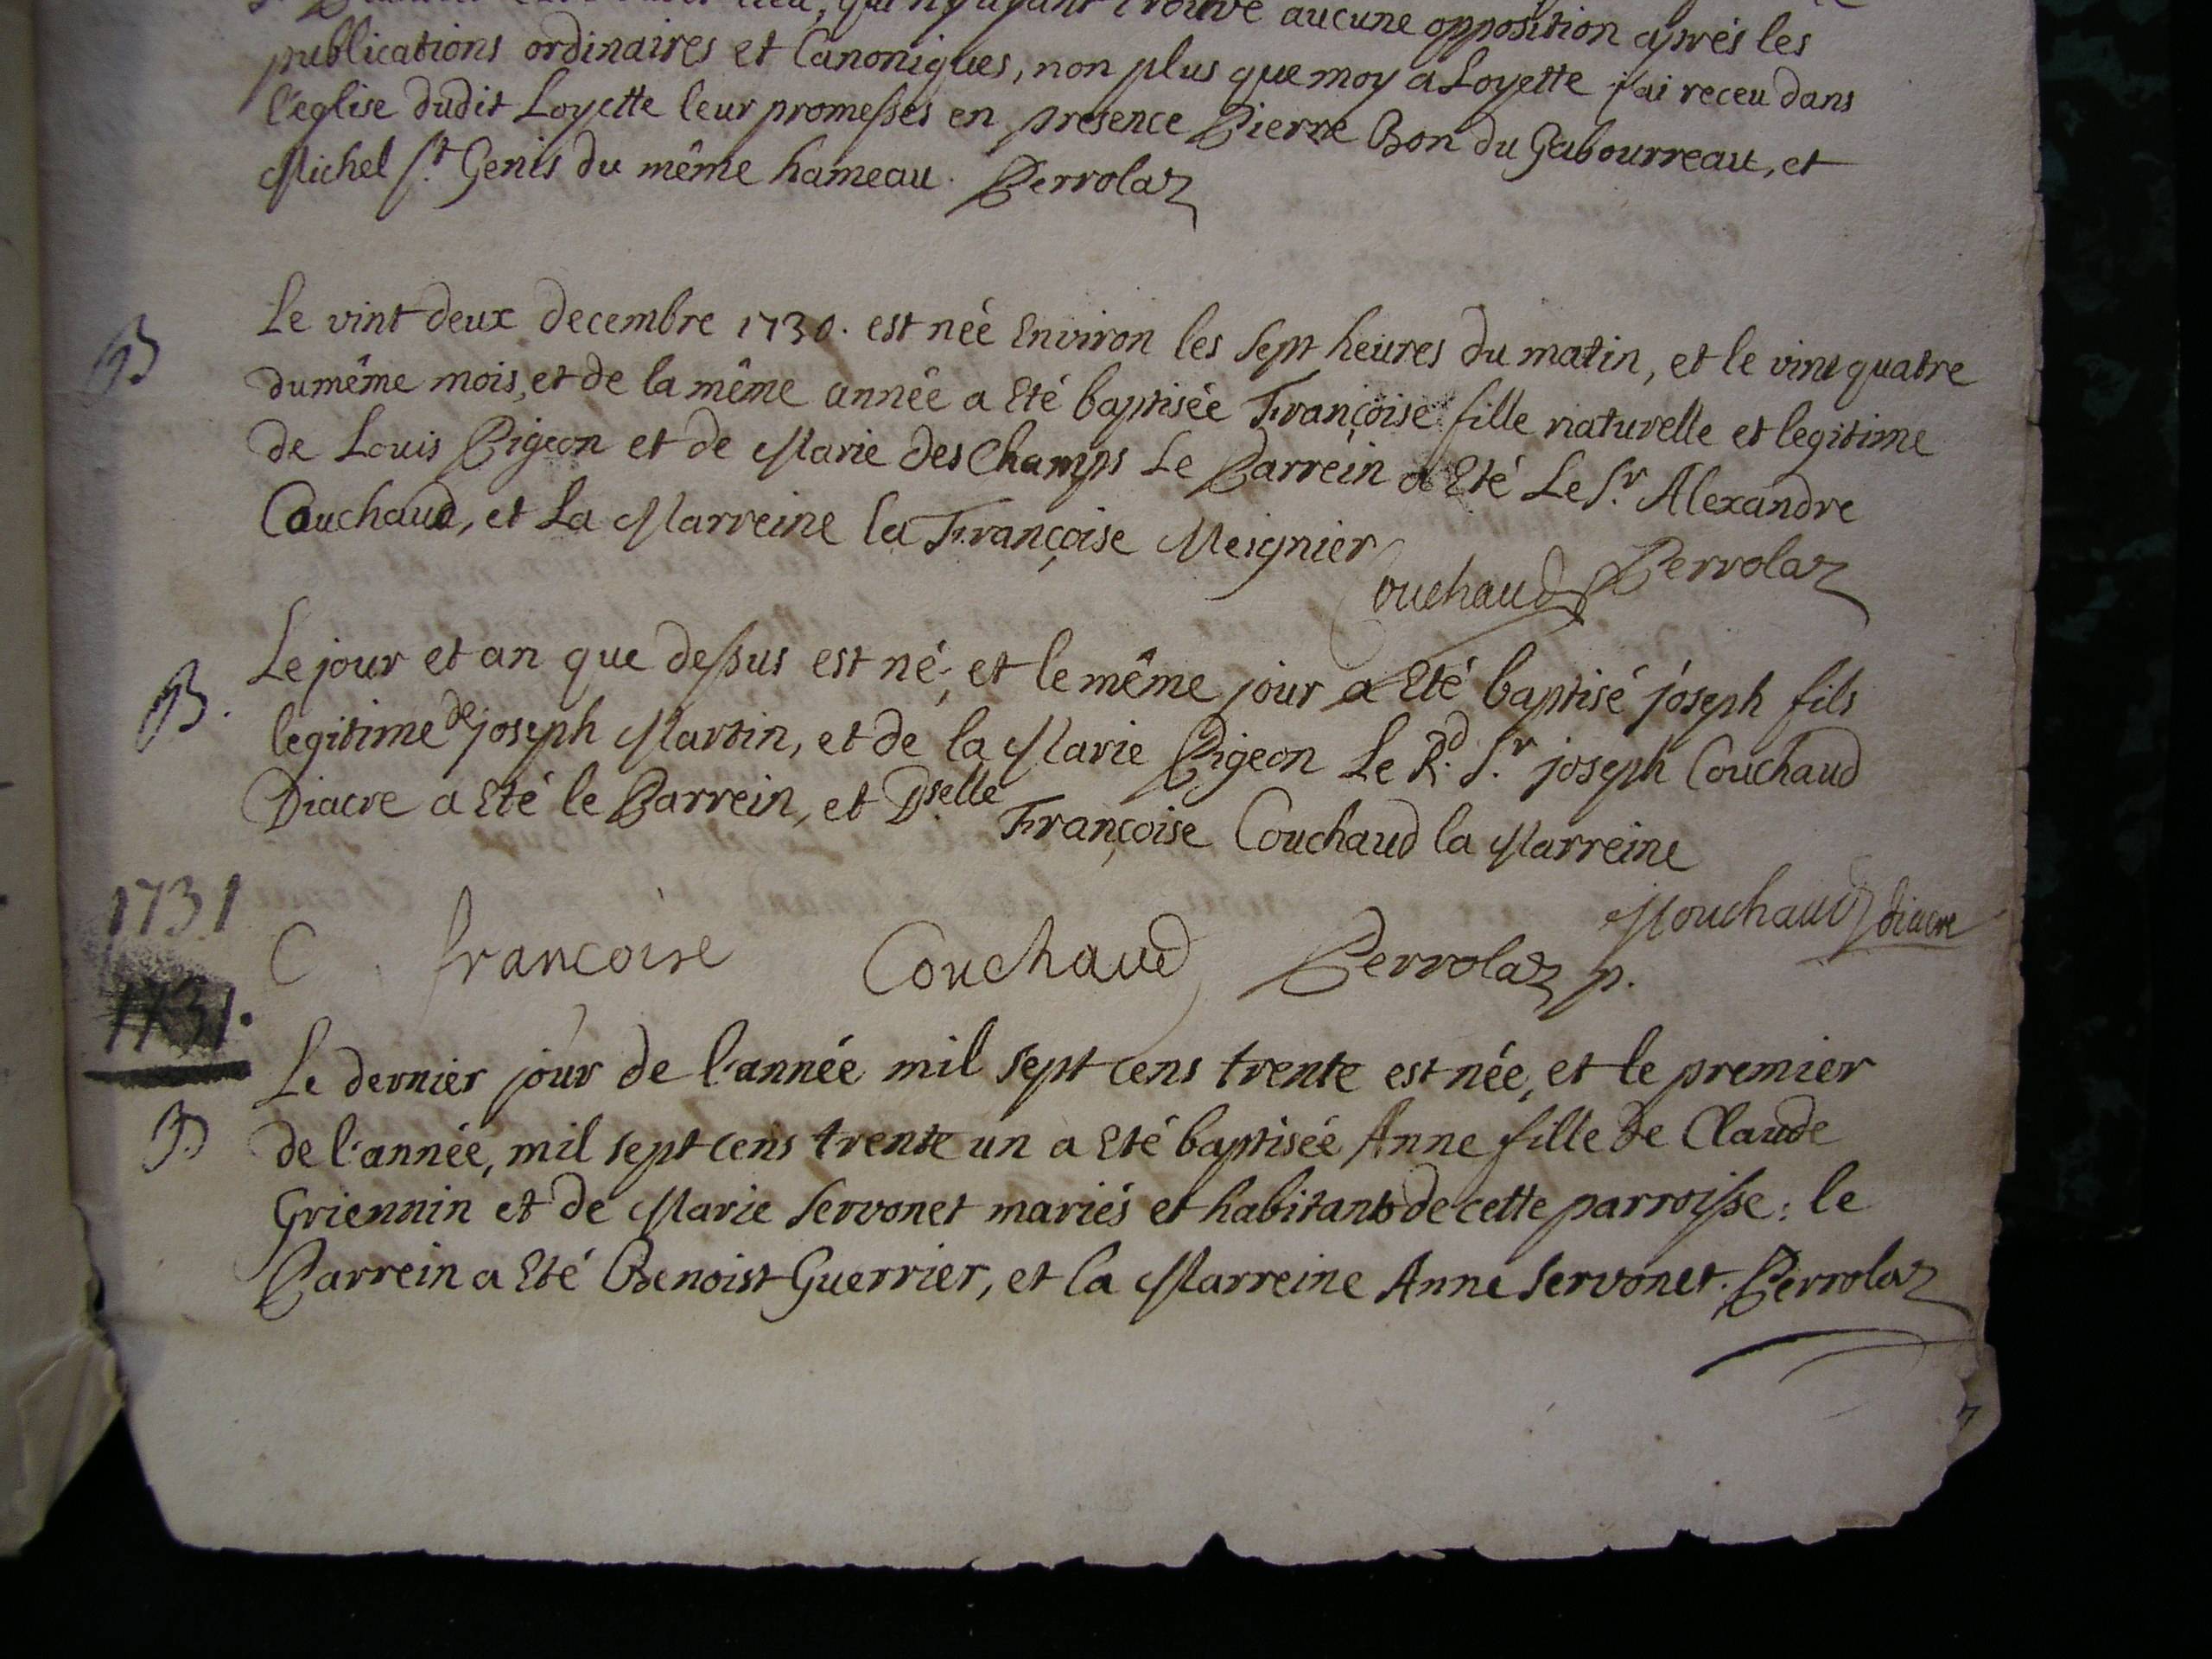 aucune opposition aprés les
publications ordinaires et Canoniques, non plus que moy a Loyette j'ai receu dans
l'eglise dudit Loyette leur promesses en presence Pierre Bon du Gabourreau, et
Michel St. Genis du même hameau. Perrolaz
B
Le vint deux decembre 1730. est née Environ les sept heures du matin, et le vint quatre
du même mois, et de la même année a Eté baptisée Françoise fille naturelle et legitime
de Louis Pigeon et de Marie des Champs Le Parrein a Eté Le Sr. Alexandre
Couchaud, et La Marreine la Françoise Meignier
Couchaud Perrolaz
B.
Le jour et an que dessus est né, et le même jour a Eté baptisé joseph fils
legitime de joseph Martin, et de la Marie Pigeon Le Rd. Sr. joseph Couchaud
Diacre a Eté le Parrein, et Dselle Françoise Couchaud la Marreine
1731
C francoise Couchaud Perrolaz p. diacre
1731.
B
Le dernier jour de l'année mil sept cens trente est née, et le premier
de l'année, mil sept cens trente un a Eté baptisée Anne fille de Claude
Griennin et de Marie Servonet mariés et habitants de cette parroisse: le
Parrein a Eté Benoist Guerrier, et la Marreine Anne Servonet. Perrolaz